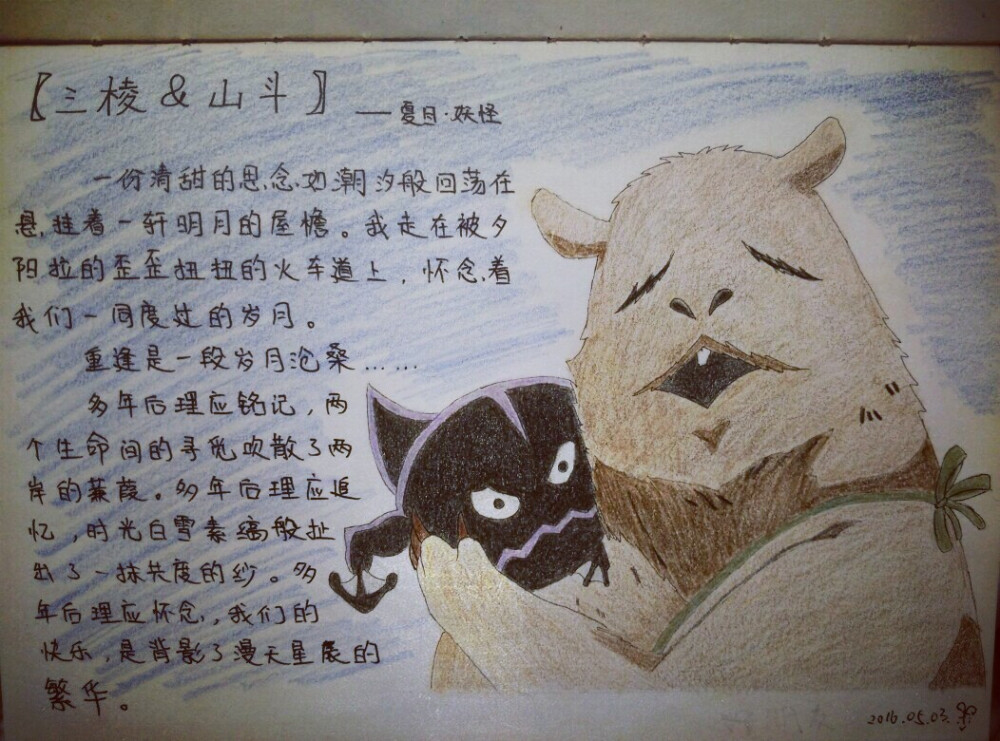 【三棱&山斗】
——夏目·妖怪
一份清甜的思念如潮汐般回荡在
悬挂着一轩明月的屋檐。我走在被夕
阳拉的歪歪扭扭的火车道上，怀念着
我们一同度过的岁月。
重逢是一段岁月沧桑……
多年后理应铭记，两
个生命间的寻觅吹散了两
岸的蒹葭。多年后理应追
忆，时光白雪素缟般扯
出了一抹共度的纱。多
年后理应怀念，我们的
快乐，是背影了漫天星辰的
繁华。
2016.05.03.